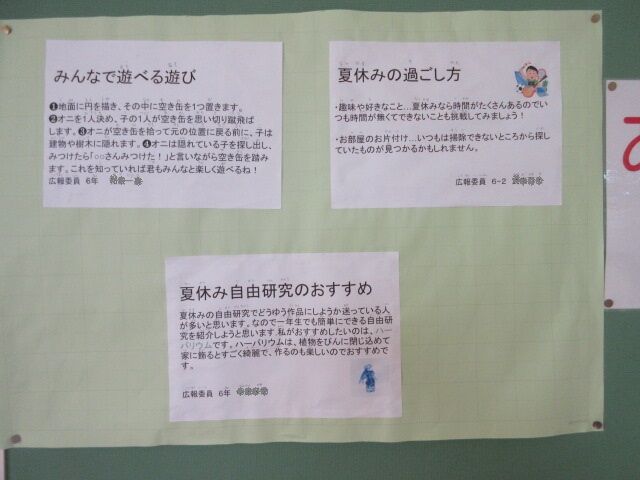 みんなで遊べる遊び
❶地面に円を描き、その中に空き缶を1つ置きます。
❷オニを1人決め、子の1人が空き缶を思い切り蹴飛ば
します。❸オニが空き缶を拾って元の位置に戻る前に、子は
建物や樹木に隠れます。❹オニは隠れている子を探し出し、
みつけたら「○○さんみつけた！」と言いながら空き缶を踏み
ます。これを知っていれば君もみんなと楽しく遊べるね！
広報委員 6年
夏休みの過ごし方
・趣味や好きなこと…夏休みなら時間がたくさんあるのでい
つも時間が無くてできないことも挑戦してみましょう！
・お部屋のお片付け…いつもは掃除できないところから探し
ていたものが見つかるかもしれません。
広報委員 6-2
夏休み自由研究のおすすめ
夏休みの自由研究でどうゆう作品にしようか迷っている人
が多いと思います。なので一年生でも簡単にできる自由研
究を紹介しようと思います.私がおすすめしたいのは、ハー
バリウムです。ハーバリウムは、植物をびんに閉じ込めて
家に飾るとすごく綺麗で、作るのも楽しいのでおすすめで
す。
広報委員 6年